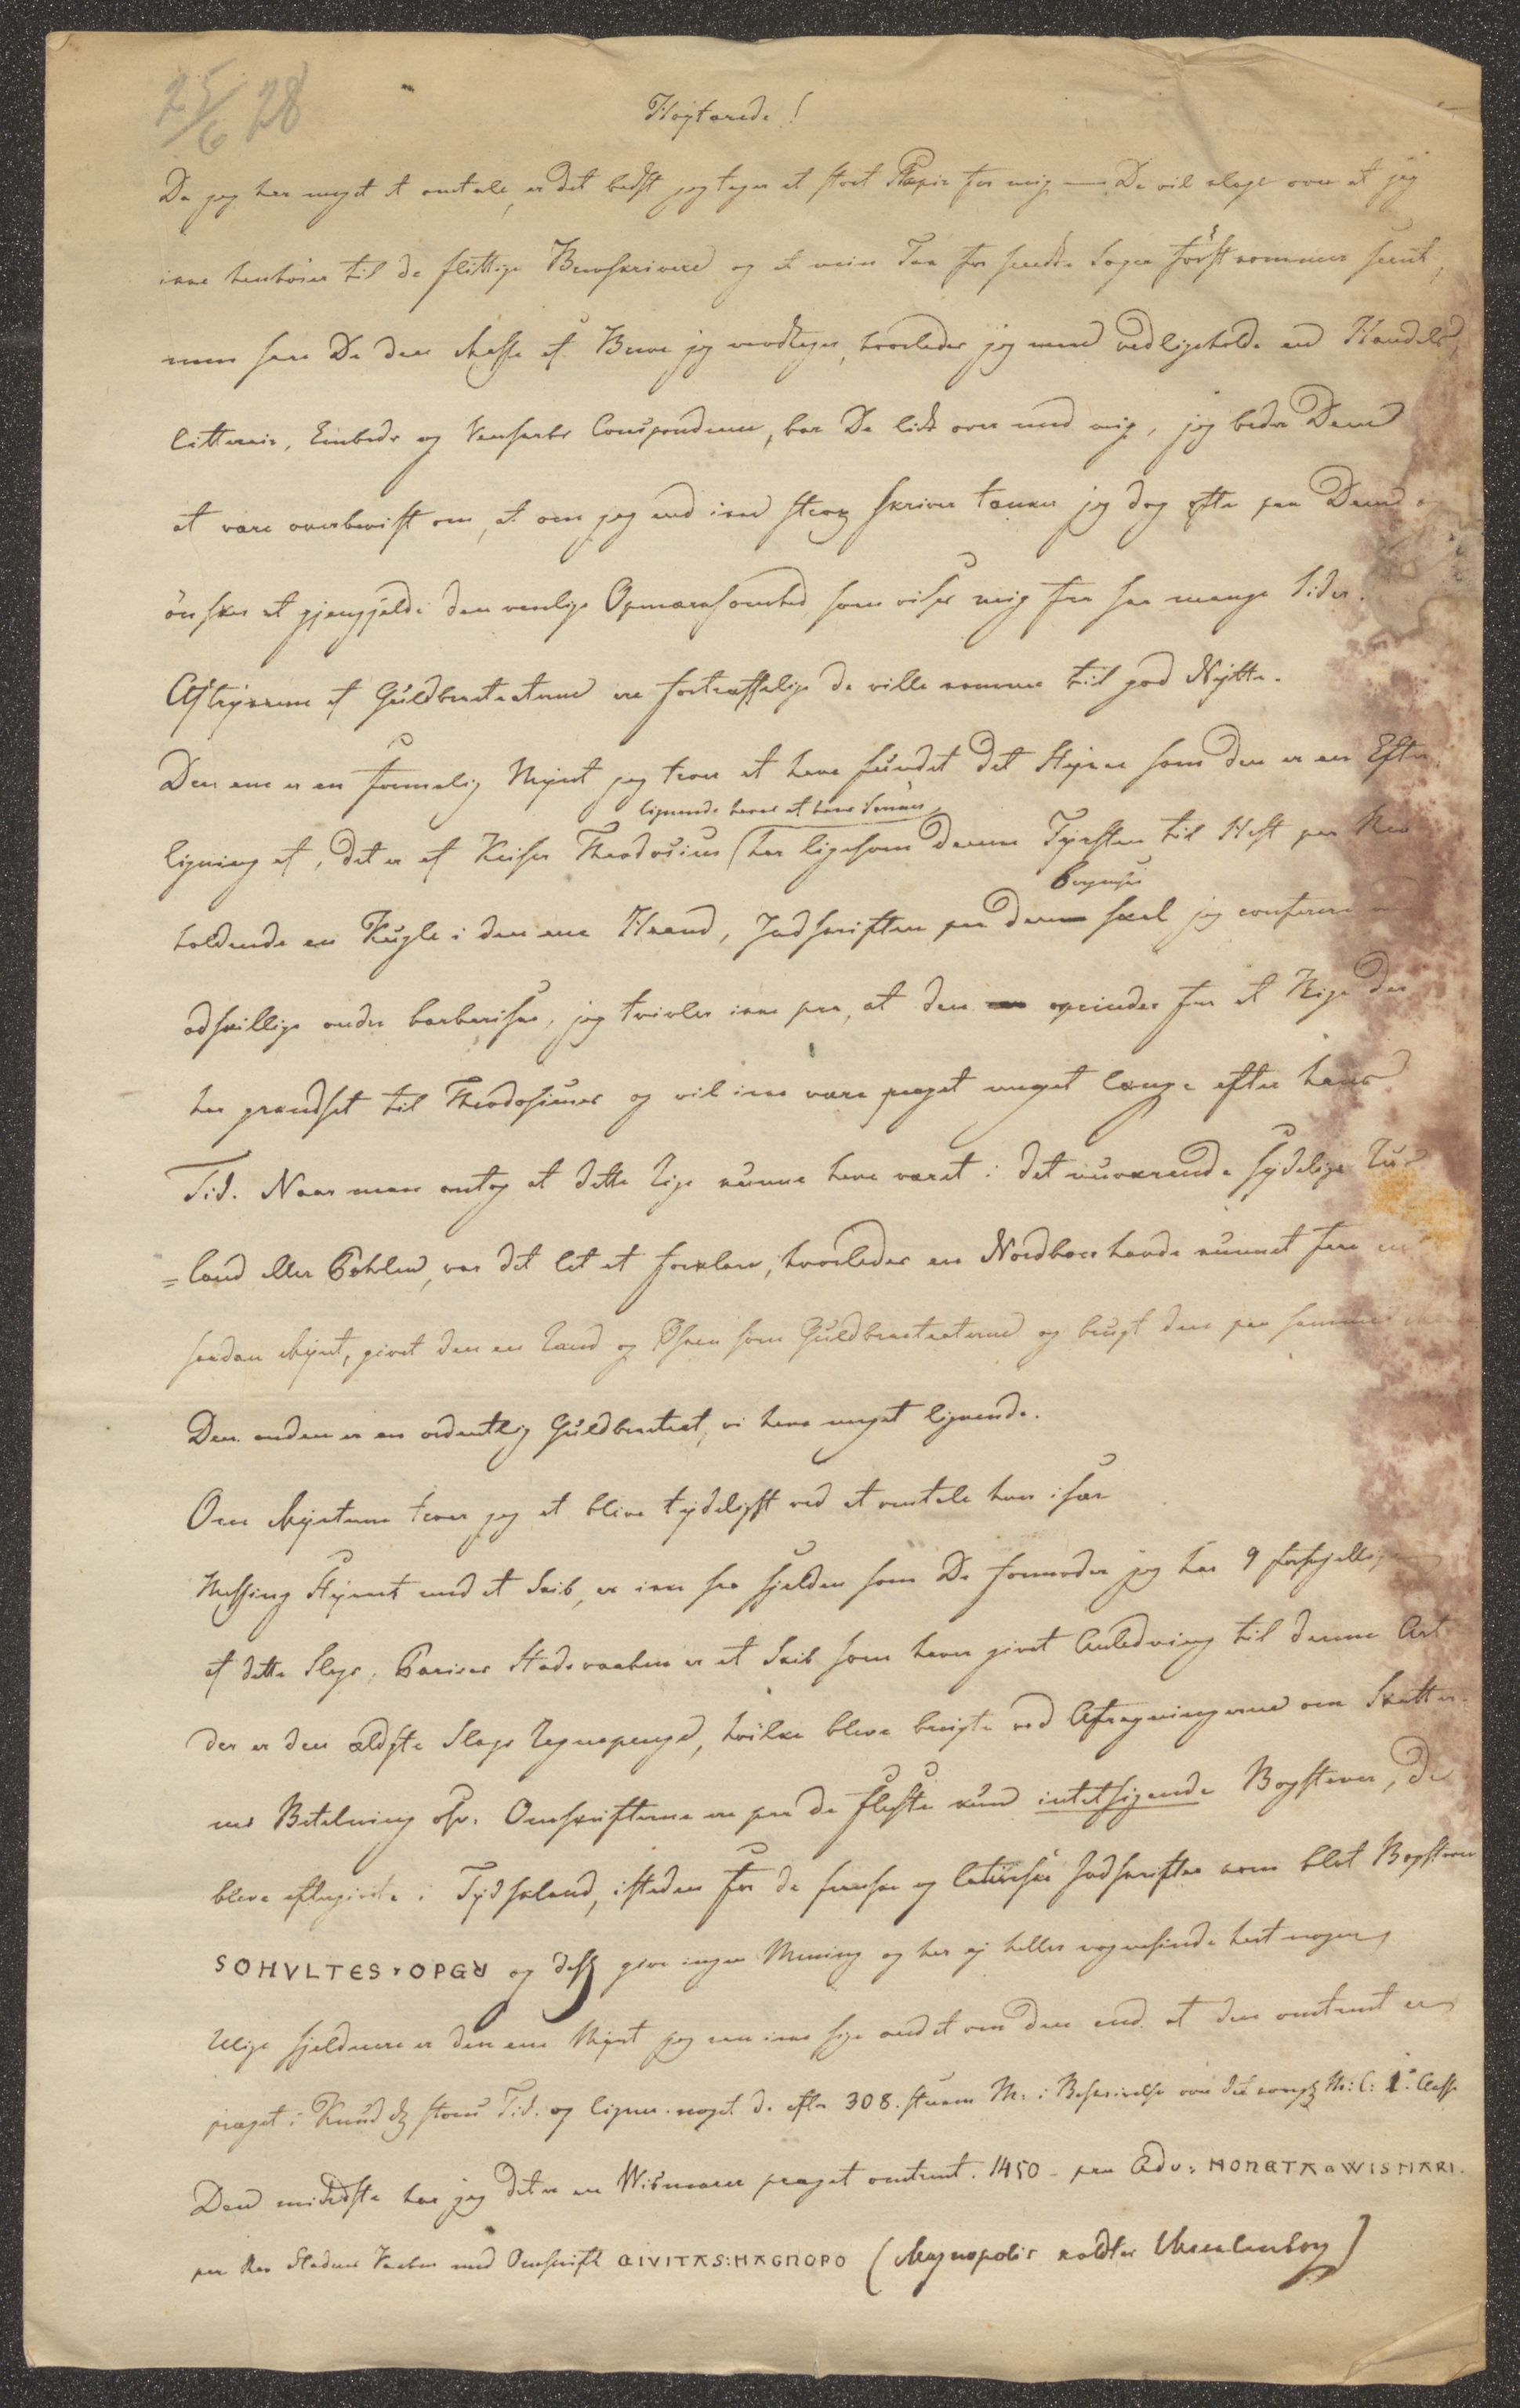 25/6 28
Høytærede!
Da jeg har meget at omtale, er det bedst jeg tager et stort Papir for mig — De vil klage over at jeg
ikke henhører til de flittige Brevskrivere og at min Tak for sendte Sager først kommer seent,
men saae De den Masse af Breve jeg modtager, hvorledes jeg maa vedligeholde en Handels,
litterair, Embeds og Venskabs Correspondence, bar De lidt over med mig, jeg beder Dem
at være overbeviist om, at om jeg end ikke strax skriver tænker jeg dog ofte paa Dem
ønsker at gjengjelde den venlige Opmærksomhed som vises mig fra saa mange Sider.
Aftrykkene af Guldbracteaterne ere fortræffelige de ville komme til god Nytte.
Den ene er en formelig Mynt jeg troer at have fundet det Stykke som den er en Efter
lignende haves af hans Sønner
ligning af, det er af Keiser Theodosius (har ligesom denne Fyrsten til Hest paa Rev
Begyndes
holdende en Kugle i den ene Haand, Indskriften paa denne skal jeg conferere
adskillige andre barbariske, jeg tvivler ikke paa, at den oprinder fra et Rige der
har grændset til Theodosiuses og vil ikke være præget meget længe efter hans
Tid. Naar man antog at dette Rige kunne have været i det nuværende sydelige Rus
=land eller Pohlen, var det let at forklare, hvorledes en Nordboer havde kunnet faae en
saadan Mynt, givet den en Rand og Øsken som Guldbracteaterne og brugt den paa samme
Den anden er en ordentlig Guldbracteat, vi have meget lignende.
Om Mynterne troer jeg at blive tydeligst ved at omtale hver især
Messing Stykket med et Skib, er ikke saa sjelden som De formoder jeg har 9 forskjellige
af dette Slags, Pariser Stadsvaaben er et Skib som haver givet Anledning til denne Art
der er den ældste Slags Regnepenge, hvilke bleve brugte ved Afregningerne om Skatter
nes Betalning osv. Omskrifterne ere paa de fleste kun intetsigende Bogstaver, de
bleve eftergjorte i Tydskland, isteden for de franske og latinske Indskrifter kom blot Bogstaver
SOHVLTES · OPGR og desl give ingen Mening og har ej heller nogensinde havt nogen
Ulige sjeldnere er den ene Mynt jeg kan ikke sige andet om den end at den omtrent er
præget i Knud d. stores Tid. og ligner noget d. efter 308. svenske M: i Beskrivelse over det kongl. M: C: 1. Classe
Den mindste har jeg det er en Wismarer præget omtrent 1450 – paa Adv: MONETA o WISMARI.
paa Rev Stadens Vaaben med Omskrift CIVITAS:MAGNOPO (Magnopolis kaldtes Mecklenborg)